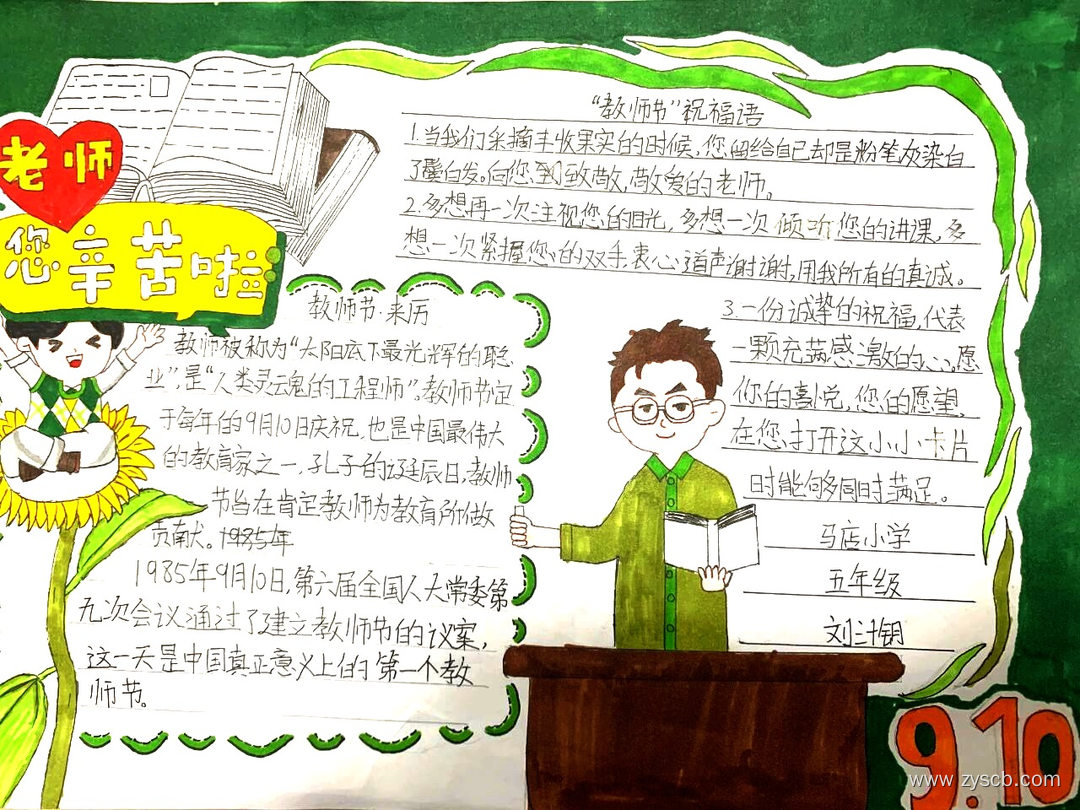 老师
您辛苦啦
"教师节"祝福语
1.当我们采摘丰收果实的时候,您留给自己却是粉笔灰染白
了鬓白发。向您致敬,敬爱的老师。
2.多想再一次注视您的目光,多想一次倾听您的讲课,多
想一次紧握您的双手,衷心道声谢谢,用我所有的真诚。
3.一份诚挚的祝福,代表
一颗充满感激的心,愿
你的喜悦,您的愿望,
在您打开这小小卡片
时能够同时满足。
马店小学
五年级
教师节·来历
教师被称为"太阳底下最光辉的职
业",是"人类灵魂的工程师"。教师节定
于每年的9月10日庆祝,也是中国最伟大
的教育家之一,孔子的诞辰日,教师
节当在肯定教师为教育所做
贡献。1985年
1985年9月10日,第六届全国人大常委第
九次会议通过了建立教师节的议案,
这一天是中国真正意义上的第一个教
师节。
9.10
www.zyscb.com